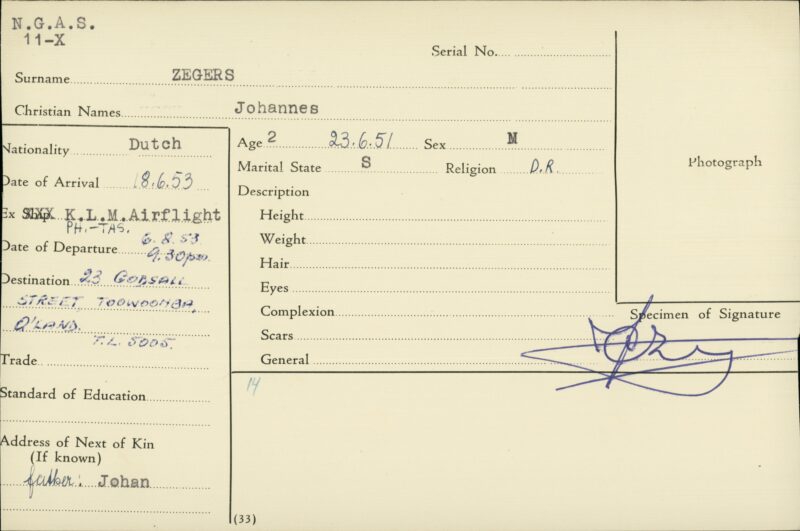 N.G.A.S.
11-X
Serial No.
Surname ZEGERS
Christian Names Johannes
Nationality Dutch
Date of Arrival 18.6.53
Ex Ship XXX K.L.M.Airflight
PH.-TAS.
Date of Departure 6.8.53
9.30pm.
Destination 23 GOBSALL
STREET, TOOWOOMBA,
Q'LAND.
T.L. 5005.
Trade
Standard of Education
Address of Next of Kin
(If known)
father: Johan
Age 2 23.6.51 Sex M
Marital State S Religion D.R
Description
Height
Weight
Hair
Eyes
Complexion
Scars
General
Photograph
Specimen of Signature
14
(33)